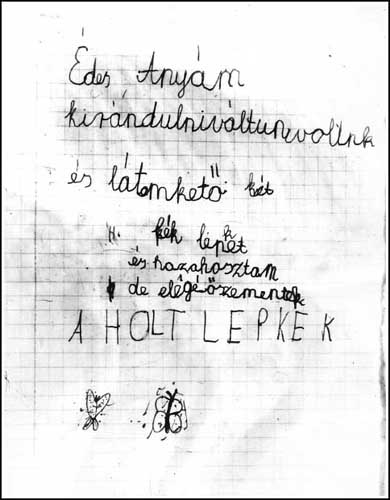 Édes Anyám
kirándulniváltunkvolünk
és látomkető két
H. kék lepkét
és hazahosztam
de elégé őzementek
A HOLT LEPKE K